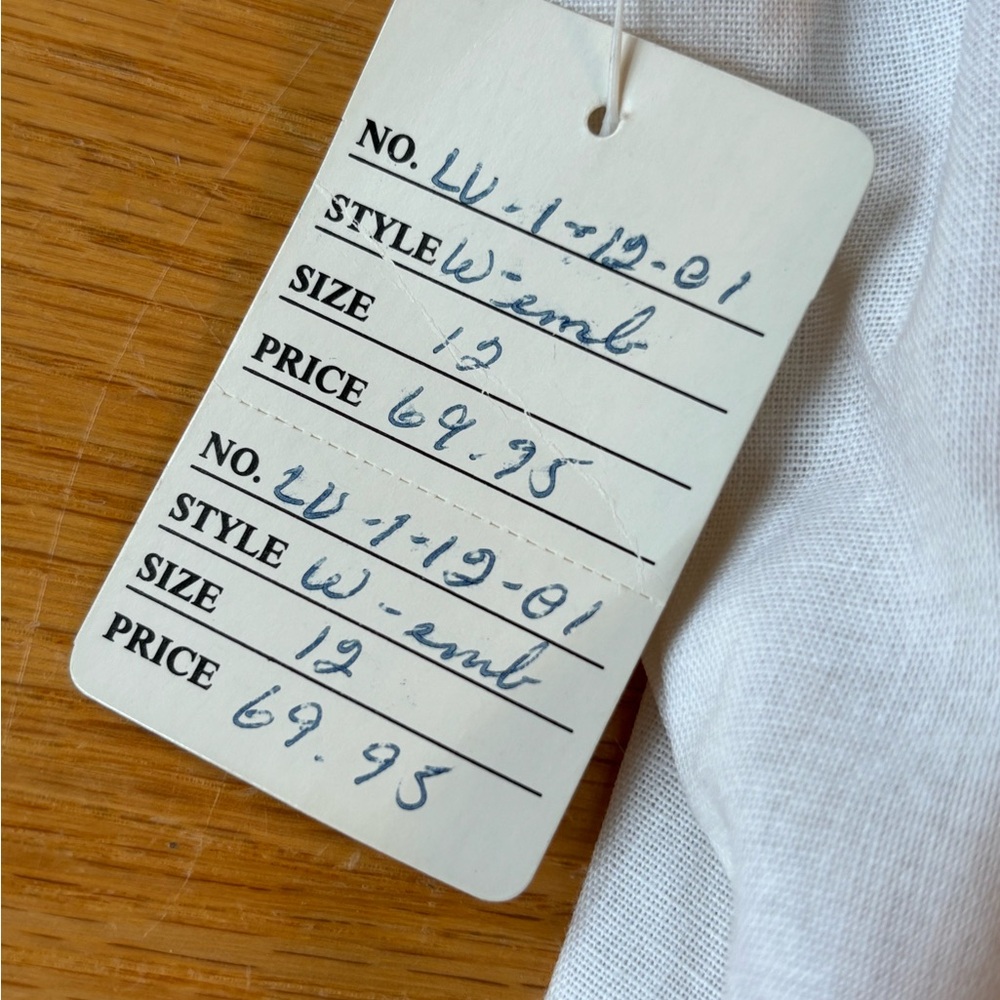 NO. LV-1-12-01
STYLE W-emb
SIZE 12
PRICE 69.95
NO. LV-1-12-01
STYLE W-emb
SIZE 12
PRICE 69.95